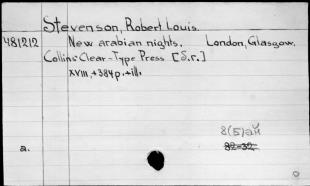 Stevenson, Robert Louis.
481212 New arabian nights. London, Glasgow,
Collins' Clear-Type Press [S.r.]
XVIII, +384p. +ill.
8(5)ай
a. 82-32